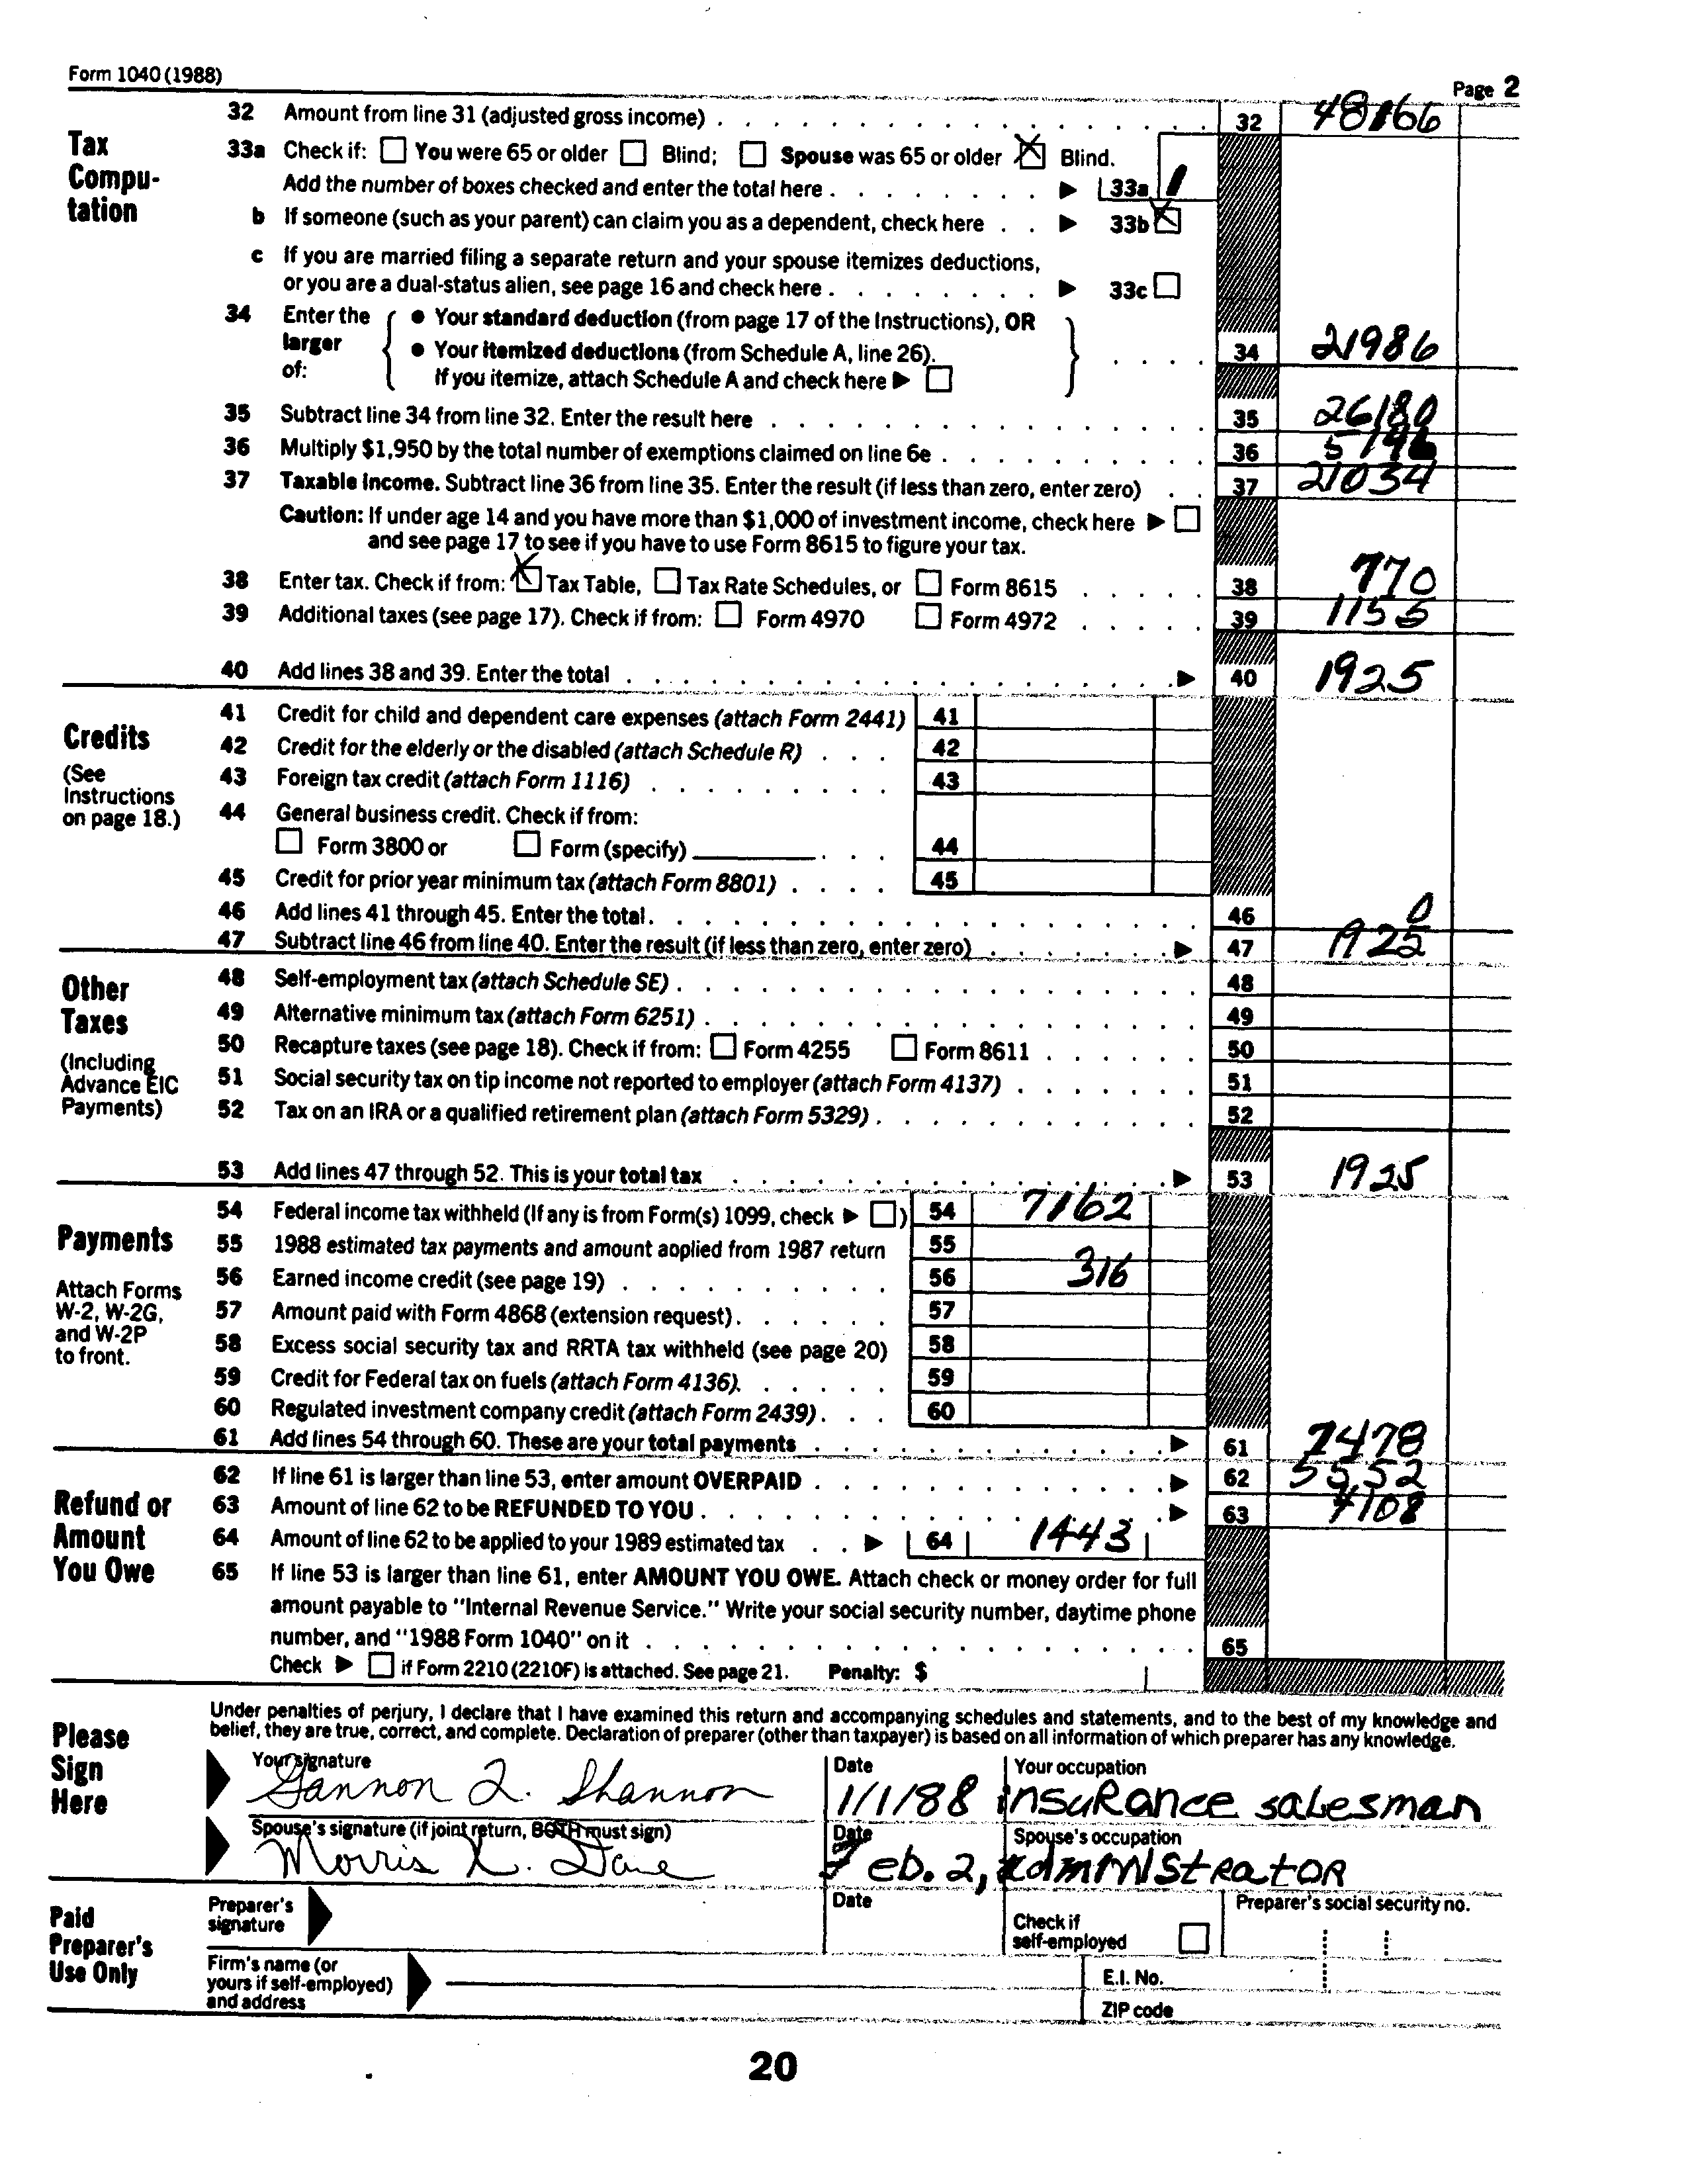 Form 1040 (1988)
Page 2
Tax Compu-tation
32 Amount from line 31 (adjusted gross income) 32 48166
33a Check if: You were 65 or older Blind; Spouse was 65 or older Blind.
Add the number of boxes checked and enter the total here 33a 1
b If someone (such as your parent) can claim you as a dependent, check here 33b
c If you are married filing a separate return and your spouse itemizes deductions,
or you are a dual-status alien, see page 16 and check here 33c
34 Enter the larger of:
• Your standard deduction (from page 17 of the Instructions), OR
• Your itemized deductions (from Schedule A, line 26). 34 21986
If you itemize, attach Schedule A and check here
35 Subtract line 34 from line 32. Enter the result here 35 26180
36 Multiply $1,950 by the total number of exemptions claimed on line 6e 36 5146
37 Taxable income. Subtract line 36 from line 35. Enter the result (if less than zero, enter zero) 37 21034
Caution: If under age 14 and you have more than $1,000 of investment income, check here
and see page 17 to see if you have to use Form 8615 to figure your tax.
38 Enter tax. Check if from: Tax Table, Tax Rate Schedules, or Form 8615 38 770
39 Additional taxes (see page 17). Check if from: Form 4970 Form 4972 39 1155
40 Add lines 38 and 39. Enter the total 40 1925
Credits
(See Instructions on page 18.)
41 Credit for child and dependent care expenses (attach Form 2441) 41
42 Credit for the elderly or the disabled (attach Schedule R) 42
43 Foreign tax credit (attach Form 1116) 43
44 General business credit. Check if from:
Form 3800 or Form (specify) 44
45 Credit for prior year minimum tax (attach Form 8801) 45
46 Add lines 41 through 45. Enter the total. 46 0
47 Subtract line 46 from line 40. Enter the result (if less than zero, enter zero) 47 1925
Other Taxes
(Including Advance EIC Payments)
48 Self-employment tax (attach Schedule SE) 48
49 Alternative minimum tax (attach Form 6251) 49
50 Recapture taxes (see page 18). Check if from: Form 4255 Form 8611 50
51 Social security tax on tip income not reported to employer (attach Form 4137) 51
52 Tax on an IRA or a qualified retirement plan (attach Form 5329) 52
53 Add lines 47 through 52. This is your total tax 53 1925
Payments
Attach Forms W-2, W-2G, and W-2P to front.
54 Federal income tax withheld (If any is from Form(s) 1099, check ) 54 7162
55 1988 estimated tax payments and amount applied from 1987 return 55
56 Earned income credit (see page 19) 56 316
57 Amount paid with Form 4868 (extension request) 57
58 Excess social security tax and RRTA tax withheld (see page 20) 58
59 Credit for Federal tax on fuels (attach Form 4136) 59
60 Regulated investment company credit (attach Form 2439) 60
61 Add lines 54 through 60. These are your total payments 61 7478
Refund or Amount You Owe
62 If line 61 is larger than line 53, enter amount OVERPAID 62 5552
63 Amount of line 62 to be REFUNDED TO YOU 63 4108
64 Amount of line 62 to be applied to your 1989 estimated tax 64 1443
65 If line 53 is larger than line 61, enter AMOUNT YOU OWE. Attach check or money order for full
amount payable to "Internal Revenue Service." Write your social security number, daytime phone
number, and "1988 Form 1040" on it 65
Check if Form 2210 (2210F) is attached. See page 21. Penalty: $
Please Sign Here
Under penalties of perjury, I declare that I have examined this return and accompanying schedules and statements, and to the best of my knowledge and
belief, they are true, correct, and complete. Declaration of preparer (other than taxpayer) is based on all information of which preparer has any knowledge.
Your signature Date Your occupation
Gannon Q. Shannon 1/1/88 insurance salesman
Spouse's signature (if joint return, BOTH must sign) Date Spouse's occupation
Morris X. Dane Feb. 2, administrator
Paid Preparer's Use Only
Preparer's signature Date Check if self-employed Preparer's social security no.
Firm's name (or yours if self-employed) and address E.I. No.
ZIP code
20